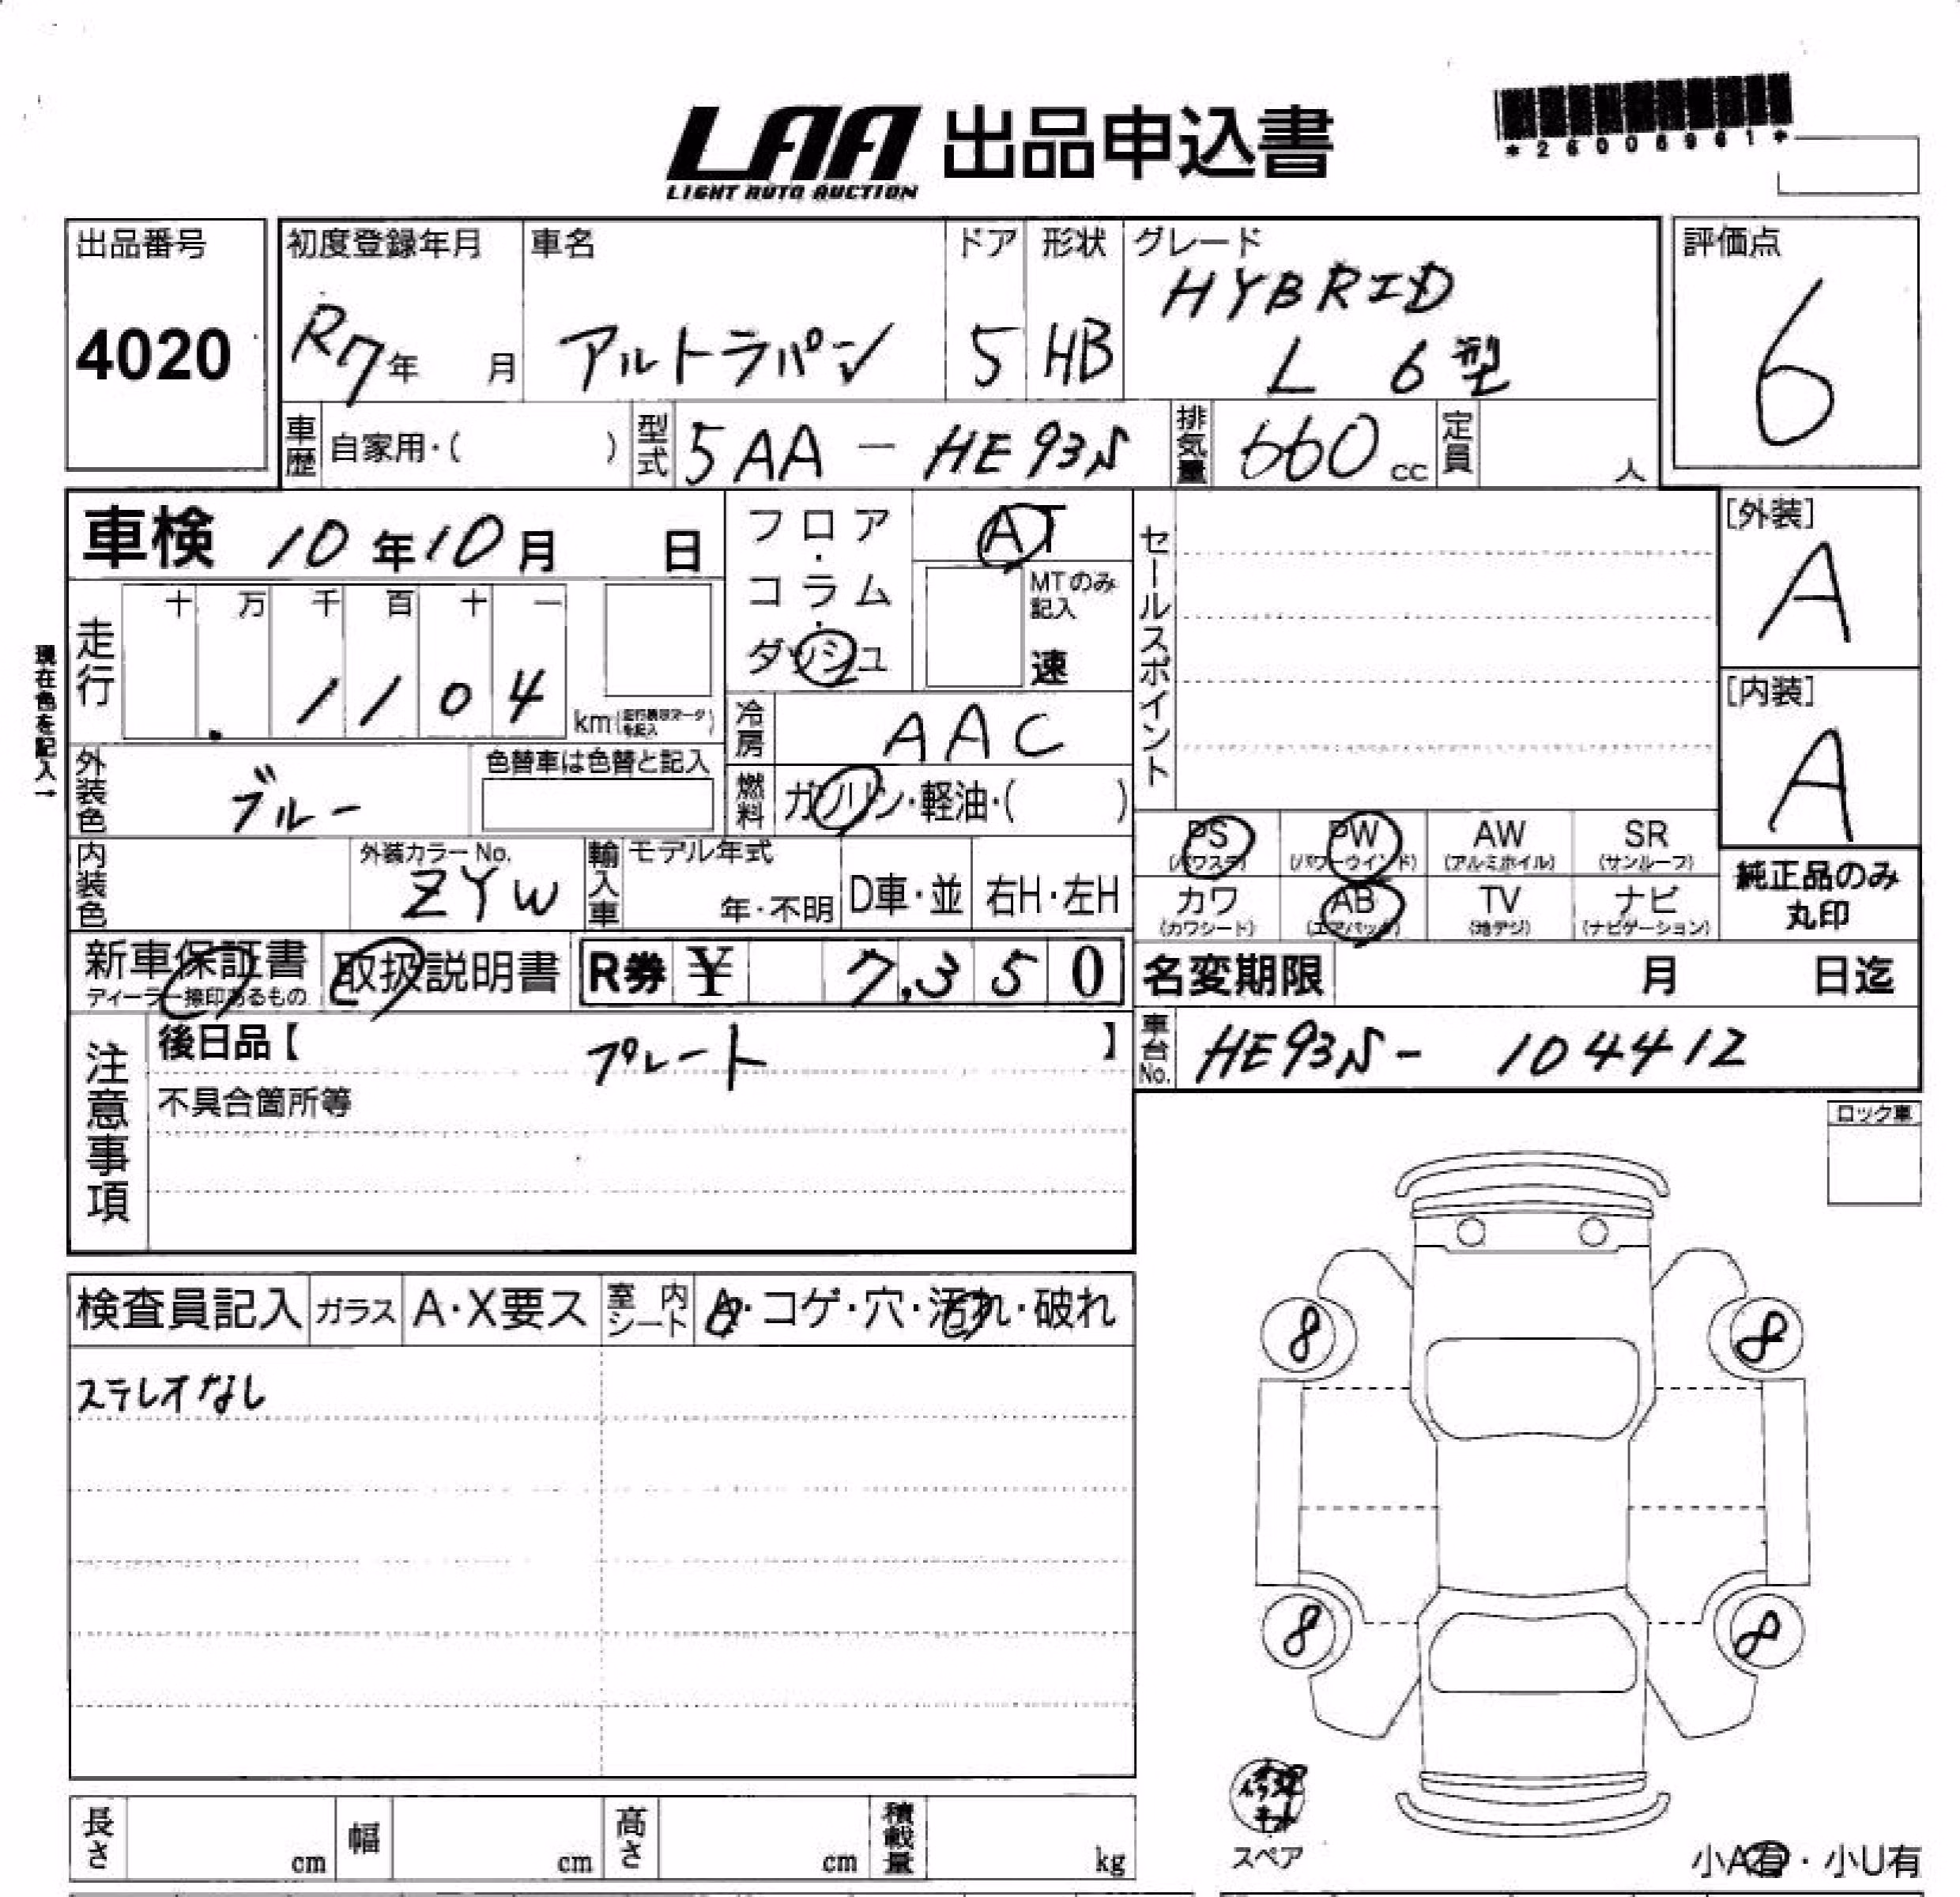 LAA 出品申込書
LIGHT AUTO AUCTION
*26006961*
出品番号
4020
初度登録年月
R7年 月
車名
アルトラパン
ドア
5
形状
HB
グレード
HYBRID
L 6型
評価点
6
車歴 自家用・( )
型式 5AA-HE93S
排気量 660 cc
定員 人
車検 10年10月 日
フロア・コラム・ダッシュ
AT
MTのみ記入
速
セールスポイント
[外装]
A
[内装]
A
現在色を記入→
走行
十 万 千 百 十 一
1104
km
冷房 AAC
外装色 ブルー
色替車は色替と記入
燃料 ガソリン・軽油・( )
内装色
外装カラーNo.
ZYW
輸入車
モデル年式
年・不明
D車・並
右H・左H
PS (パワステ)
PW (パワーウインド)
AW (アルミホイル)
SR (サンルーフ)
カワ (カワシート)
AB (エアバッグ)
TV (地デジ)
ナビ (ナビゲーション)
純正品のみ
丸印
新車保証書
ディーラー捺印あるもの
取扱説明書
R券 ¥ 7,350
名変期限 月 日迄
注意事項
後日品【 プレート 】
不具合箇所等
車台No. HE93S- 104412
ロック車
検査員記入
ガラス A・X要ス
室内シート A・コゲ・穴・汚れ・破れ
ステレオなし
8
8
8
8
修理キット
スペア
小A有・小U有
長さ cm
幅 cm
高さ cm
積載量 kg